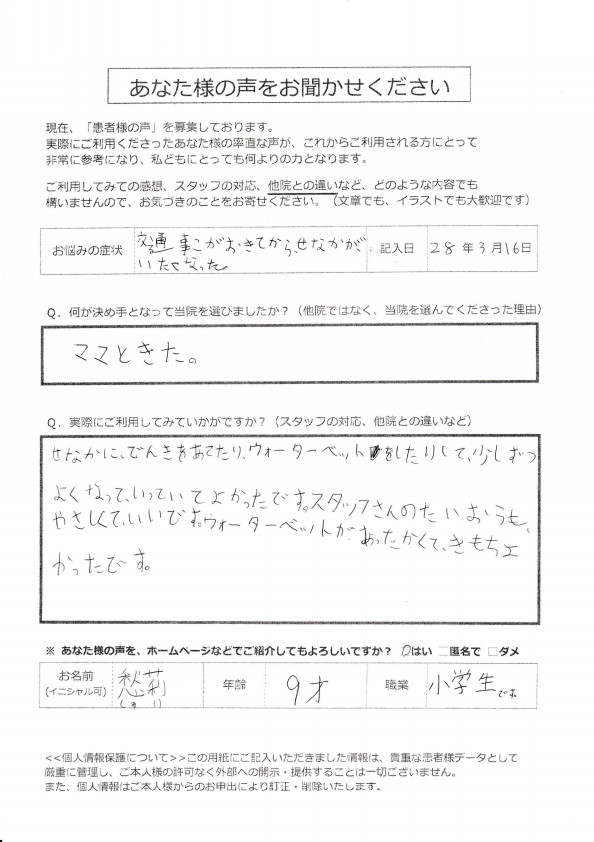 あなた様の声をお聞かせください
現在、「患者様の声」を募集しております。
実際にご利用くださったあなた様の率直な声が、これからご利用される方にとって
非常に参考になり、私どもにとっても何よりの力となります。
ご利用してみての感想、スタッフの対応、他院との違いなど、どのような内容でも
構いませんので、お気づきのことをお寄せください。（文章でも、イラストでも大歓迎です）
お悩みの症状 交通事こがおきてから、せなかが 記入日 28年3月16日
いたくなった。
Q．何が決め手となって当院を選びましたか？（他院ではなく、当院を選んでくださった理由）
ママときた。
Q．実際にご利用してみていかがですか？（スタッフの対応、他院との違いなど）
せなかに、でんきをあてたり、ウォーターベットをしたりして、少しずつ
よくなって、いっていてよかったです。スタッフさんのたいおうも、
やさしくて、いいです。ウォーターベットが、あったかくて、きもちよ
かったです。
※ あなた様の声を、ホームページなどでご紹介してもよろしいですか？ □はい □匿名で □ダメ
お名前 年齢 9才 職業 小学生です。
(イニシャル可) しゅり
<<個人情報保護について>>この用紙にご記入いただきました情報は、貴重な患者様データとして
厳重に管理し、ご本人様の許可なく外部への開示・提供することは一切ございません。
また、個人情報はご本人様からのお申出により訂正・削除いたします。